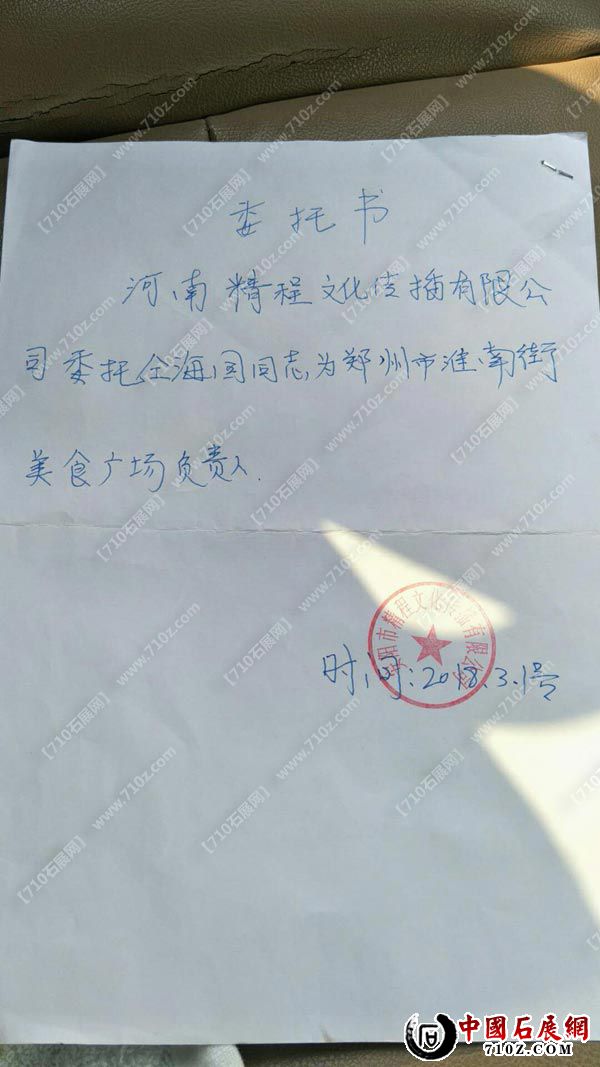 委托书
河南精程文化传播有限公
司委托仝海园同志为郑州市淮南街
美食广场负责人.
阳市精程文化传播有限公司
时间:2018.3.1号
【710石展网】 www.710z.com
中國石展網
710Z.COM